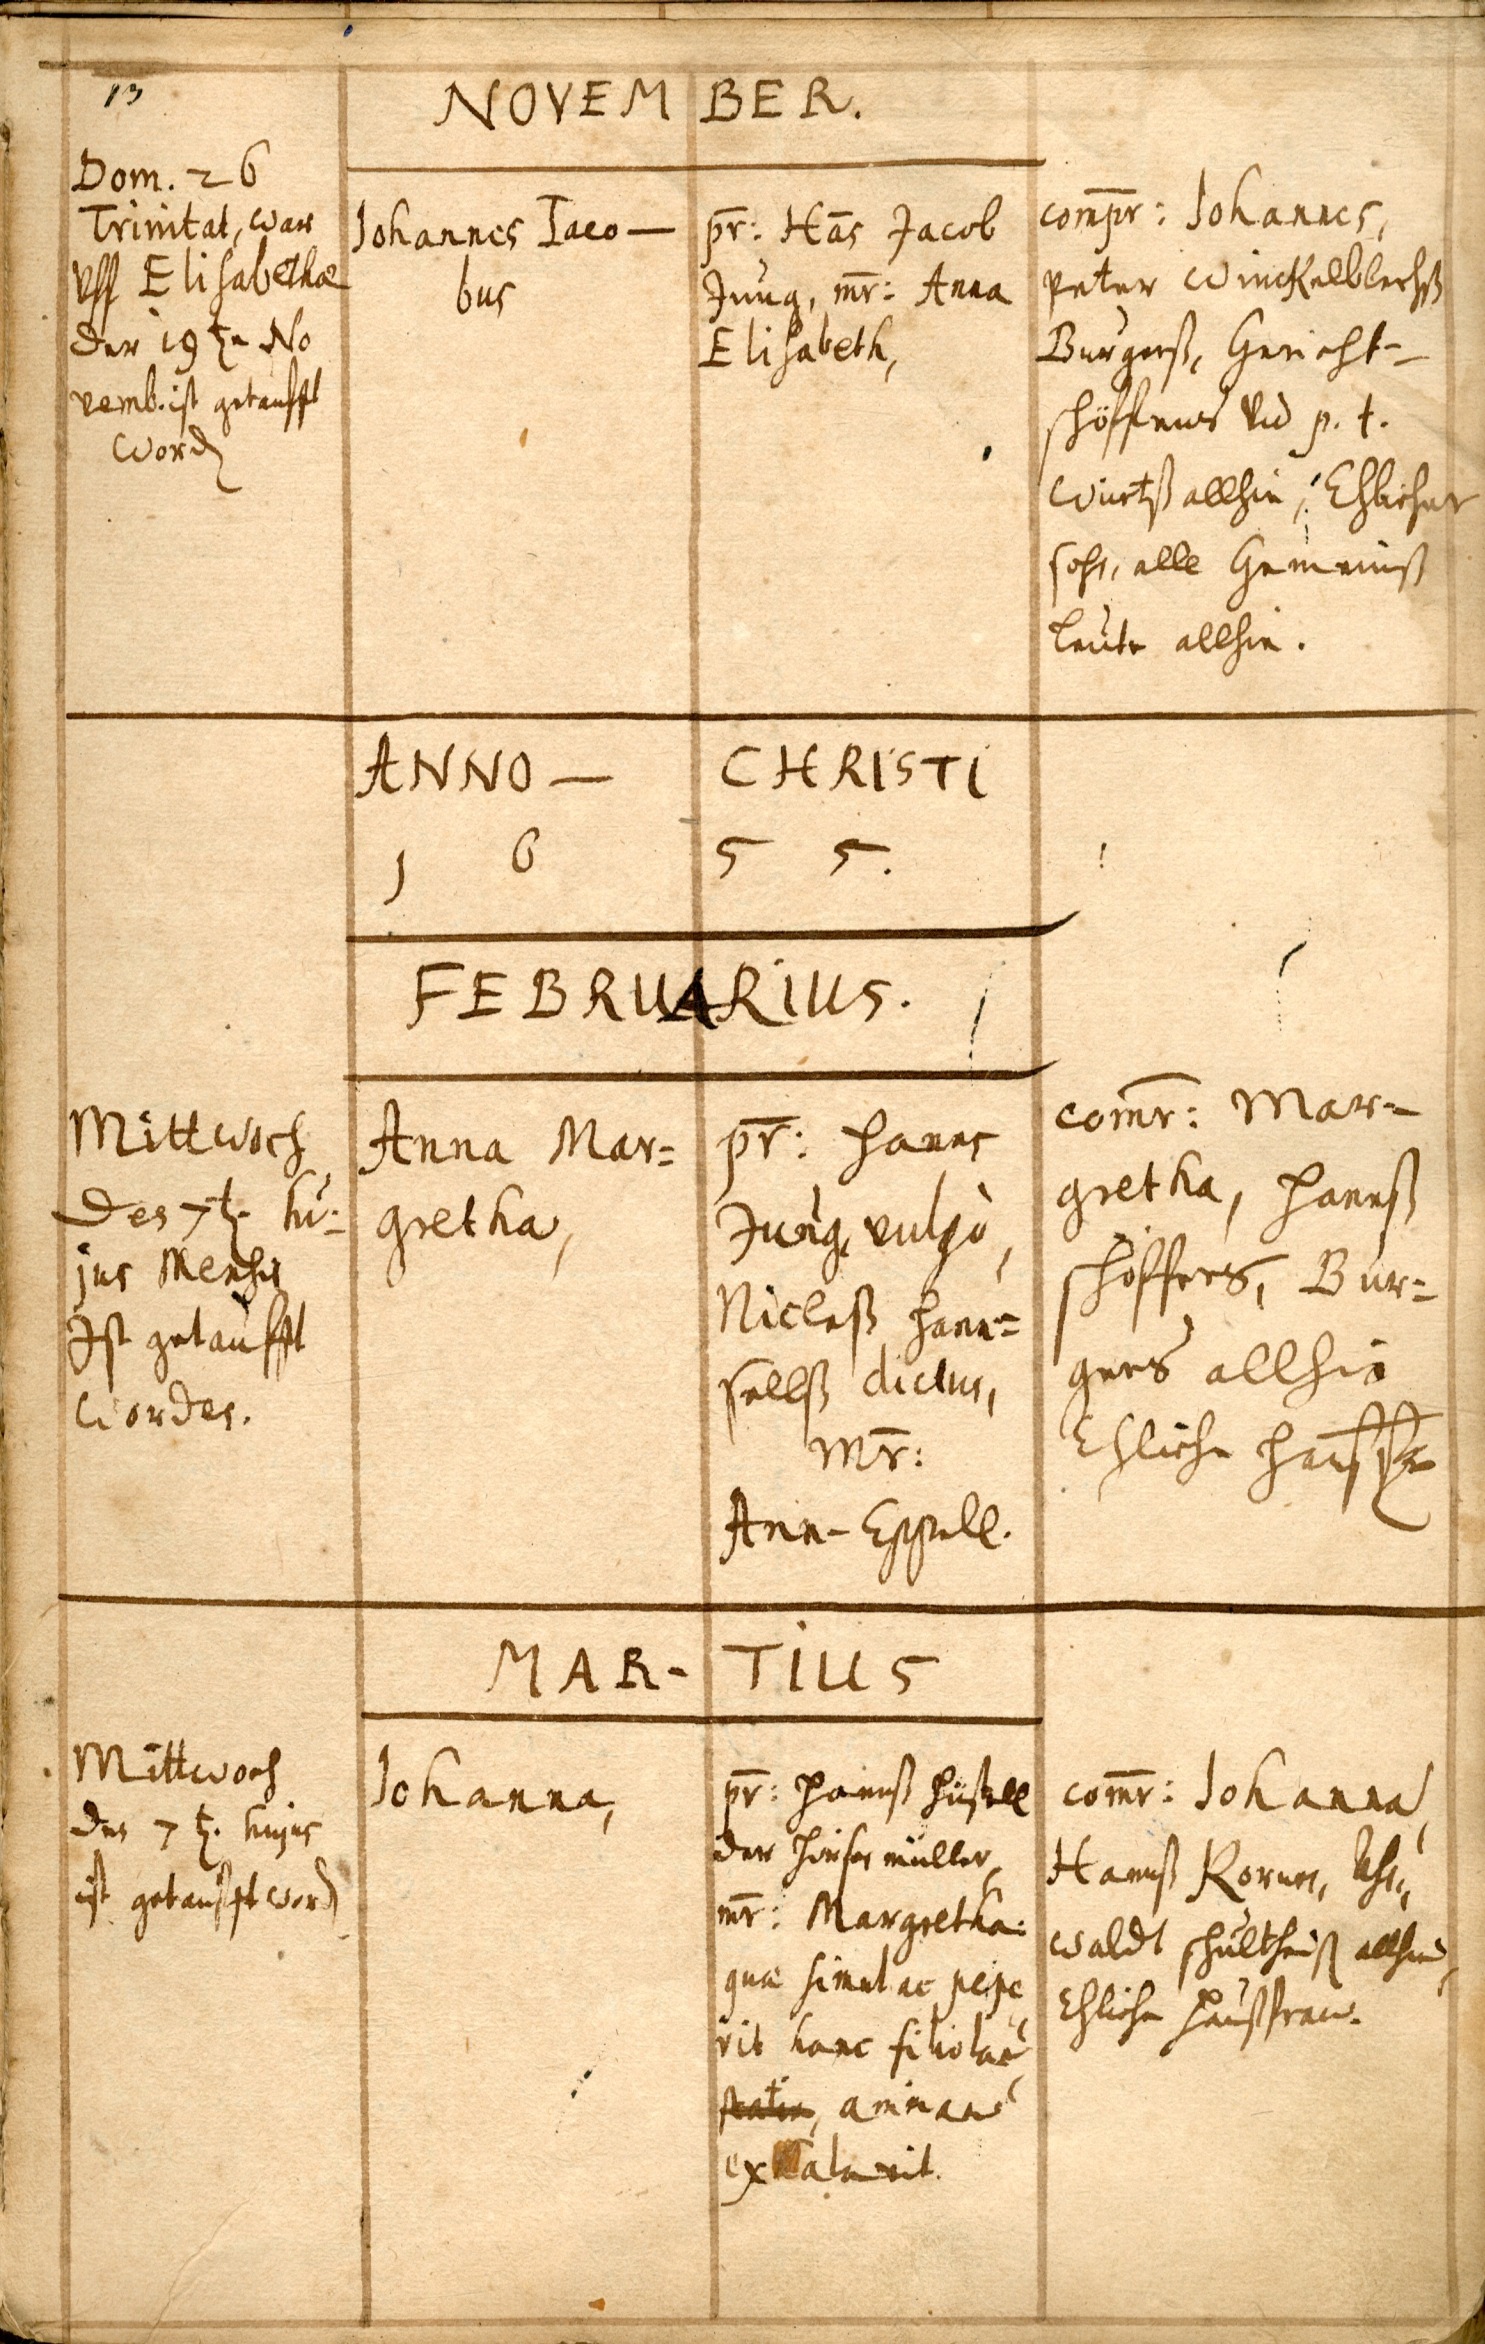 13
NOVEMBER.
Dom. 26
Trinitat, war
vff Elisabethæ
der 19 te No
vemb. ist getaufft
word
Johannes Jaco-
bus
pr: Hãs Jacob
Jung, mr: Anna
Elisabeth,
compr: Johannes,
Peter Winckelblechß
Burgerß, Gericht-
schöffens vnd p. t.
Wirtß allhie, Ehlicher
sohn, alle Gemeinß
leute allhie.
ANNO - CHRISTI
1 6 5 5.
FEBRUARIUS.
Mittwoch
des 7 t. hu-
jus Mensis
Ist getaufft
worden.
Anna Mar=
gretha,
pr: Hanns
Jung, vulgò,
Nicleß Hann=
sellß dictus,
Mr:
Ann-
comr: Mar-
gretha, Hannß
schöffers, Bur=
gers allhie
Ehliche haußfr
MAR- TIUS
Mittwoch
des 7 t. hujus
ist getaufft word
Johanna,
pr: Hannß
der müller,
mr: Margretha:
quæ simul ac pepe
rit hanc filiolam,
statim, animam
exhalavit.
comr: Johanna,
Hannß Kornes,
waldt schultheiß allhie,
Ehliche Haußfraw.